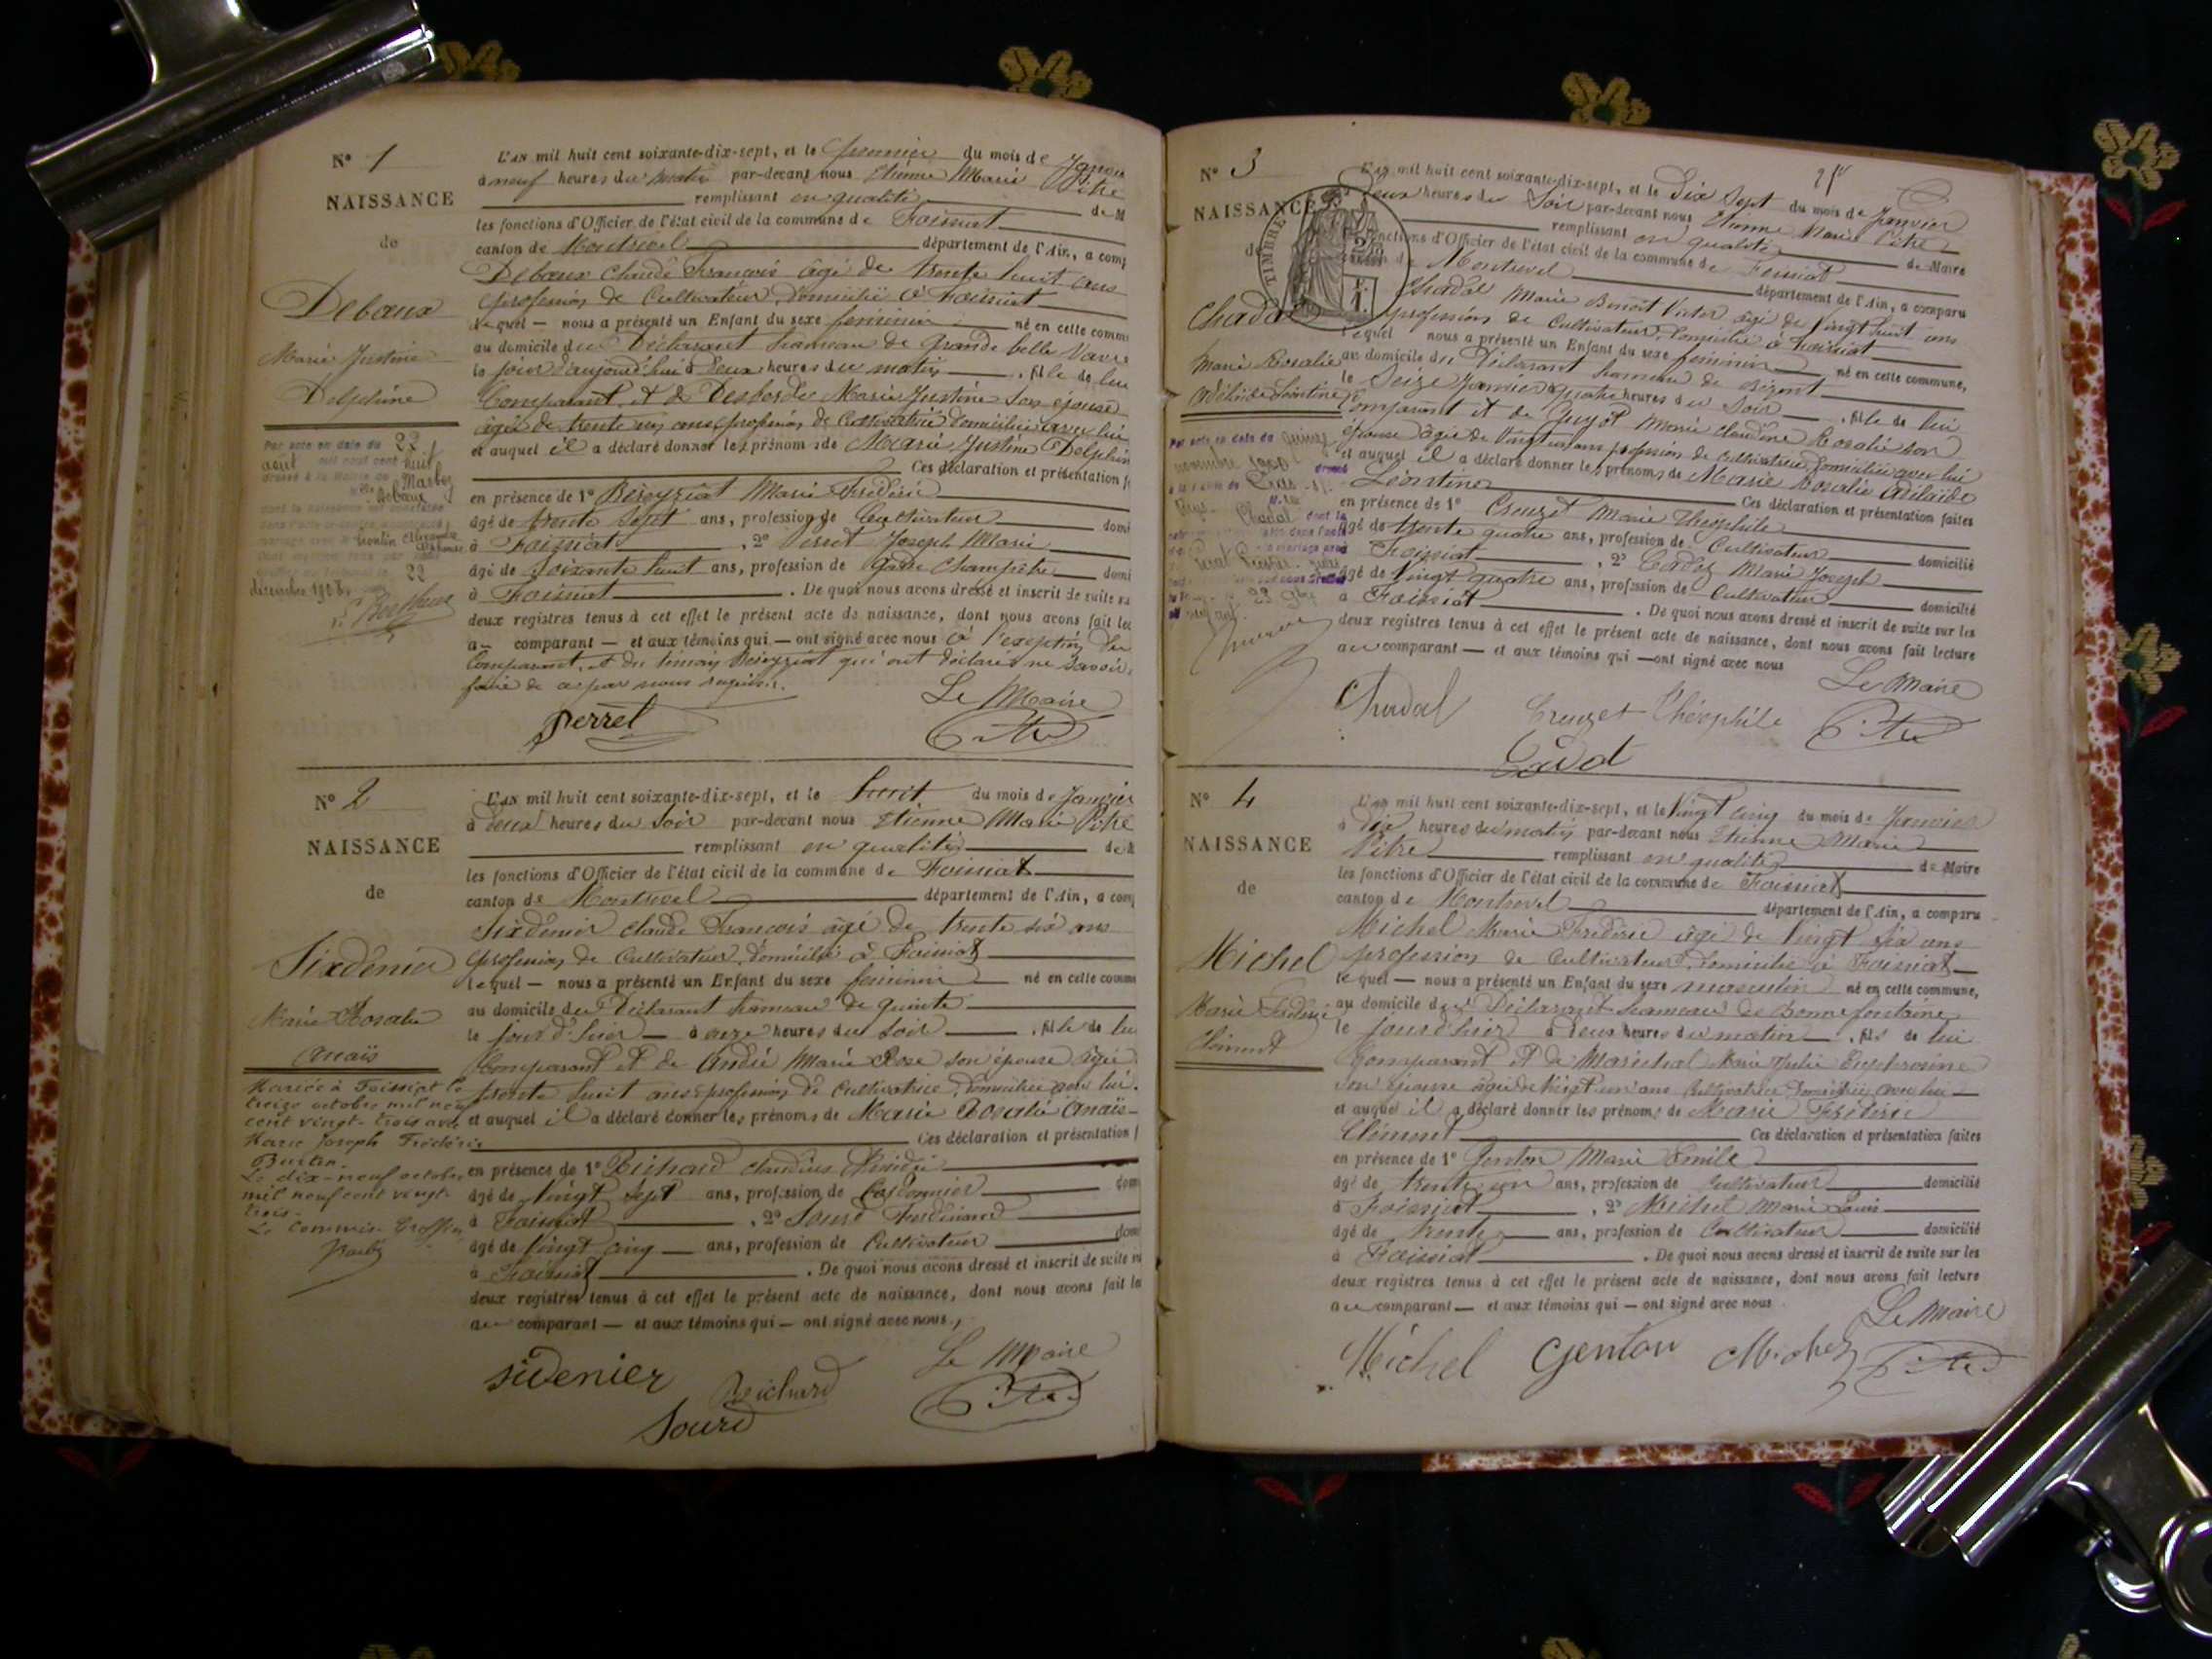 N° 1
NAISSANCE
de
Debaux
Marie Justine
Delphine
Par acte en date du 22
août mil neuf cent huit
dressé à la Mairie de Marboz
Debaux
22
décembre 1908
L'AN mil huit cent soixante-dix-sept, et le premier du mois de Janvier
à neuf heures du matin par-devant nous Etienne Marie Pitre
remplissant en qualité de M
les fonctions d'Officier de l'état civil de la commune de Foissiat
canton de Montrevel département de l'Ain, a comp
Debaux Claude François âgé de trente huit ans
profession de Cultivateur, domicilié à Foissiat
lequel — nous a présenté un Enfant du sexe feminin né en cette comm
au domicile du Déclarant hameau de grande belle Vavre
le jour d'aujourd'hui à deux heures du matin , fille de lui
Comparant et de Desbordes Marie Justine son épouse
âgée de trente un ans profession de Cultivatrice domiciliée avec lui
et auquel il a déclaré donner les prénoms de Marie Justine Delphine
Ces déclaration et présentation f
en présence de 1° Béreyziat Marie Frédéric
âgé de trente sept ans, profession de Cultivateur domi
à Foissiat , 2° Perret Joseph Marie
âgé de soixante huit ans, profession de garde champêtre domi
à Foissiat . De quoi nous avons dressé et inscrit de suite su
deux registres tenus à cet effet le présent acte de naissance, dont nous avons fait lec
au comparant — et aux témoins qui — ont signé avec nous à l'exception du
Comparant, et du témoin Béreyziat qui ont déclaré ne savoir
faire de ce par nous requis.
Le Maire
Perret
Pitre
N° 2
NAISSANCE
de
Sixdenier
Marie Rosalie
Anaïs
Mariée à Foissiat le
treize octobre mil neuf
cent vingt-trois avec
Marie Joseph Frédéric
Burtin
Le dix-neuf octobre
mil neuf cent vingt
trois.
Le Commis Greffier
L'AN mil huit cent soixante-dix-sept, et le huit du mois de Janvier
à deux heures du soir par-devant nous Etienne Marie Pitre
remplissant en qualité de M
les fonctions d'Officier de l'état civil de la commune de Foissiat
canton de Montrevel département de l'Ain, a comp
Sixdenier Claude François âgé de trente six ans
profession de Cultivateur, domicilié à Foissiat
lequel — nous a présenté un Enfant du sexe feminin né en cette comm
au domicile du Déclarant hameau de quinte
le jour d'hier — à onze heures du soir , fille de lui
Comparant et de André Marie Rose son épouse âgée
trente huit ans profession de Cultivatrice, domiciliée avec lui.
et auquel il a déclaré donner les prénoms de Marie Rosalie Anaïs
Ces déclaration et présentation f
en présence de 1° Richard Claudius
âgé de vingt sept ans, profession de Cordonnier dom
à Foissiat , 2° Sourd Ferdinand
âgé de vingt cinq ans, profession de Cultivateur dom
à Foissiat . De quoi nous avons dressé et inscrit de suite su
deux registres tenus à cet effet le présent acte de naissance, dont nous avons fait le
au comparant — et aux témoins qui — ont signé avec nous,
Le Maire
sixdenier Richard Pitre
Sourd
N° 3
NAISSANCE
de
TIMBRE
Chadal
Marie Rosalie
Adélaïde Léontine
Par acte en date du quinze
novembre 1900
Chadal dont la
L'AN mil huit cent soixante-dix-sept, et le dix sept du mois de Janvier
deux heures du soir par-devant nous Etienne Marie Pitre
remplissant en qualité de Maire
fonctions d'Officier de l'état civil de la commune de Foissiat
Montrevel département de l'Ain, a comparu
Chadal Marie Benoît Victor âgé de vingt huit ans
profession de Cultivateur, domicilié à Foissiat
lequel nous a présenté un Enfant du sexe feminin né en cette commune,
au domicile du Déclarant hameau de
le seize Janvier à quatre heures du soir , fille de lui
Comparant et de Guyot Marie Claudine Rosalie son
épouse âgée de vingt ans profession de Cultivatrice domiciliée avec lui
et auquel il a déclaré donner les prénoms de Marie Rosalie Adélaïde
Léontine Ces déclaration et présentation faites
en présence de 1° Creuzet Marie Théophile
âgé de trente quatre ans, profession de Cultivateur domicilié
à Foissiat , 2° Marie Joseph
âgé de vingt quatre ans, profession de Cultivateur domicilié
à Foissiat . De quoi nous avons dressé et inscrit de suite sur les
deux registres tenus à cet effet le présent acte de naissance, dont nous avons fait lecture
au comparant — et aux témoins qui — ont signé avec nous
Le Maire
Chadal Creuzet Théophile Pitre
N° 4
NAISSANCE
de
Michel
Marie Frédéric
Clément
L'AN mil huit cent soixante-dix-sept, et le vingt cinq du mois de Janvier
à dix heures du matin par-devant nous Etienne Marie
Pitre remplissant en qualité de Maire
les fonctions d'Officier de l'état civil de la commune de Foissiat
canton de Montrevel département de l'Ain, a comparu
Michel Marie Frédéric âgé de vingt six ans
profession de Cultivateur, domicilié à Foissiat
lequel — nous a présenté un Enfant du sexe masculin né en cette commune,
au domicile du Déclarant hameau de Bonnefontaine
le jour d'hier à deux heures du matin , fils de lui
Comparant et de Maréchal Marie Julie Euphrosine
son épouse âgée de vingt un ans Cultivatrice domiciliée avec lui
et auquel il a déclaré donner les prénoms de Marie Frédéric
Clément Ces déclaration et présentation faites
en présence de 1° Genton Marie Emile
âgé de trente un ans, profession de Cultivateur domicilié
à Foissiat , 2° Michel Marie Louis
âgé de trente ans, profession de Cultivateur domicilié
à Foissiat . De quoi nous avons dressé et inscrit de suite sur les
deux registres tenus à cet effet le présent acte de naissance, dont nous avons fait lecture
au comparant — et aux témoins qui — ont signé avec nous
Le Maire
Michel Genton Michel Pitre